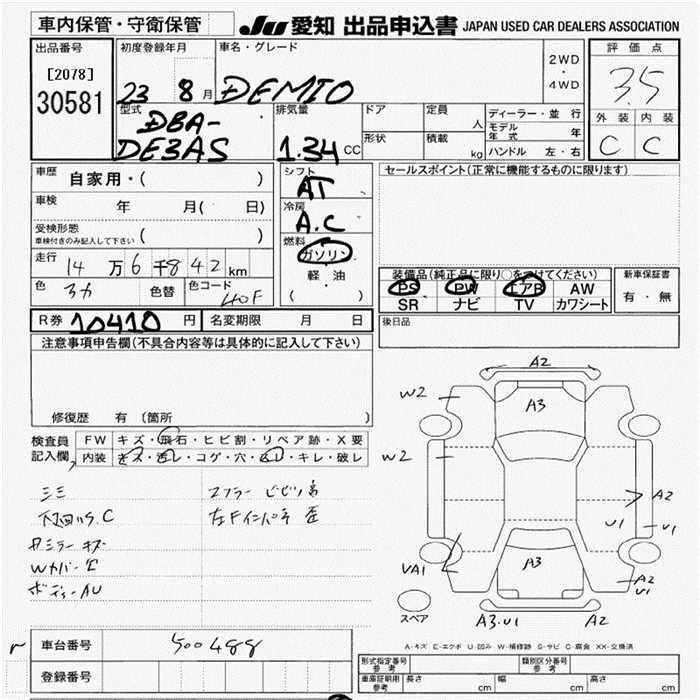 車内保管・守衛保管 JU 愛知 出品申込書 JAPAN USED CAR DEALERS ASSOCIATION
出品番号
[2078]
30581
初度登録年月
23 8 月
車名・グレード
DEMIO
2WD
・
4WD
評価点
3.5
外装 内装
C C
型式
DBA-
DE3AS
排気量
1.34 CC
ドア
形状
定員 人
積載 kg
ディーラー・並行
モデル年式 年
ハンドル 左・右
車歴 自家用・( )
車検 年 月( 日)
受検形態
車検付きのみ記入して下さい ( )
走行 14 万 6 千 842 km
色 色替 色コード 40F
シフト
AT
冷房
A.C
燃料
ガソリン
・
軽・油
( )
セールスポイント(正常に機能するものに限ります)
装備品(純正品に限り○をつけてください)
PS PW エアB AW
SR ナビ TV カワシート
新車保証書
有・無
R券 10410 円 名変期限 月 日
後日品
注意事項申告欄(不具合内容等は具体的に記入して下さい)
修復歴 有 (箇所 )
検査員記入欄
FW キズ・飛石・ヒビ割・リペア跡・X要
内装 キズ・汚レ・コゲ・穴・スレ・キレ・破レ
マフラー ビビリ音
Wカバー
ボディーAU
A2
W2
A3
W2
A2
U1
U1
VA1
A3
A2
U1
スペア
A3.U1
A2
A-キズ E-エクボ U-凹み W-補修跡 S-サビ C-腐食 XX-交換済
車台番号 500488
登録番号
型式指定番号 参考
類別区分番号 参考
車庫証明用 参考 長さ cm 幅 cm 高さ cm